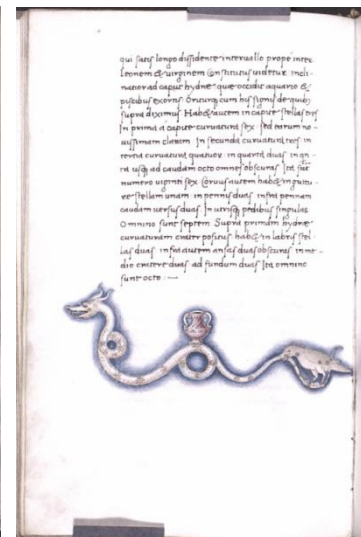 qui satis longo dissidente interuallo prope inter
leonem & uirginem constitutus uidetur incli
natior ad caput hydrae quae occidit aquario &
piscibus exoritur cum his signis de quibus
supra diximus Hab& autem in capite stellas tres
In prima a capite curuatura sex sed earum no-
uissimam claram In secunda curuatura tres in
tertia curuatura quatuor in quarta duas in
ta usq ad caudam octo omnes obscuras Ita sunt
numero uiginti sex Coruus autem hab& in guttu-
re stellam unam in pennis duas infra pennam
caudam uersus duas In utrisq pedibus singulas
Omnino sunt septem Supra primam hydrae
curuaturam crater positus hab& in labris stel-
las duas infra autem ansas duas obscuras in me-
dio cratere duas ad fundum duas Ita omnino
sunt octo :—